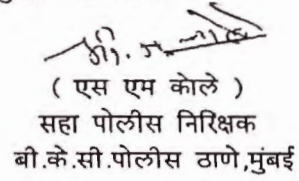 ( एस एम कोले )
सहा पोलीस निरिक्षक
बी.के.सी.पोलीस ठाणे,मुंबई